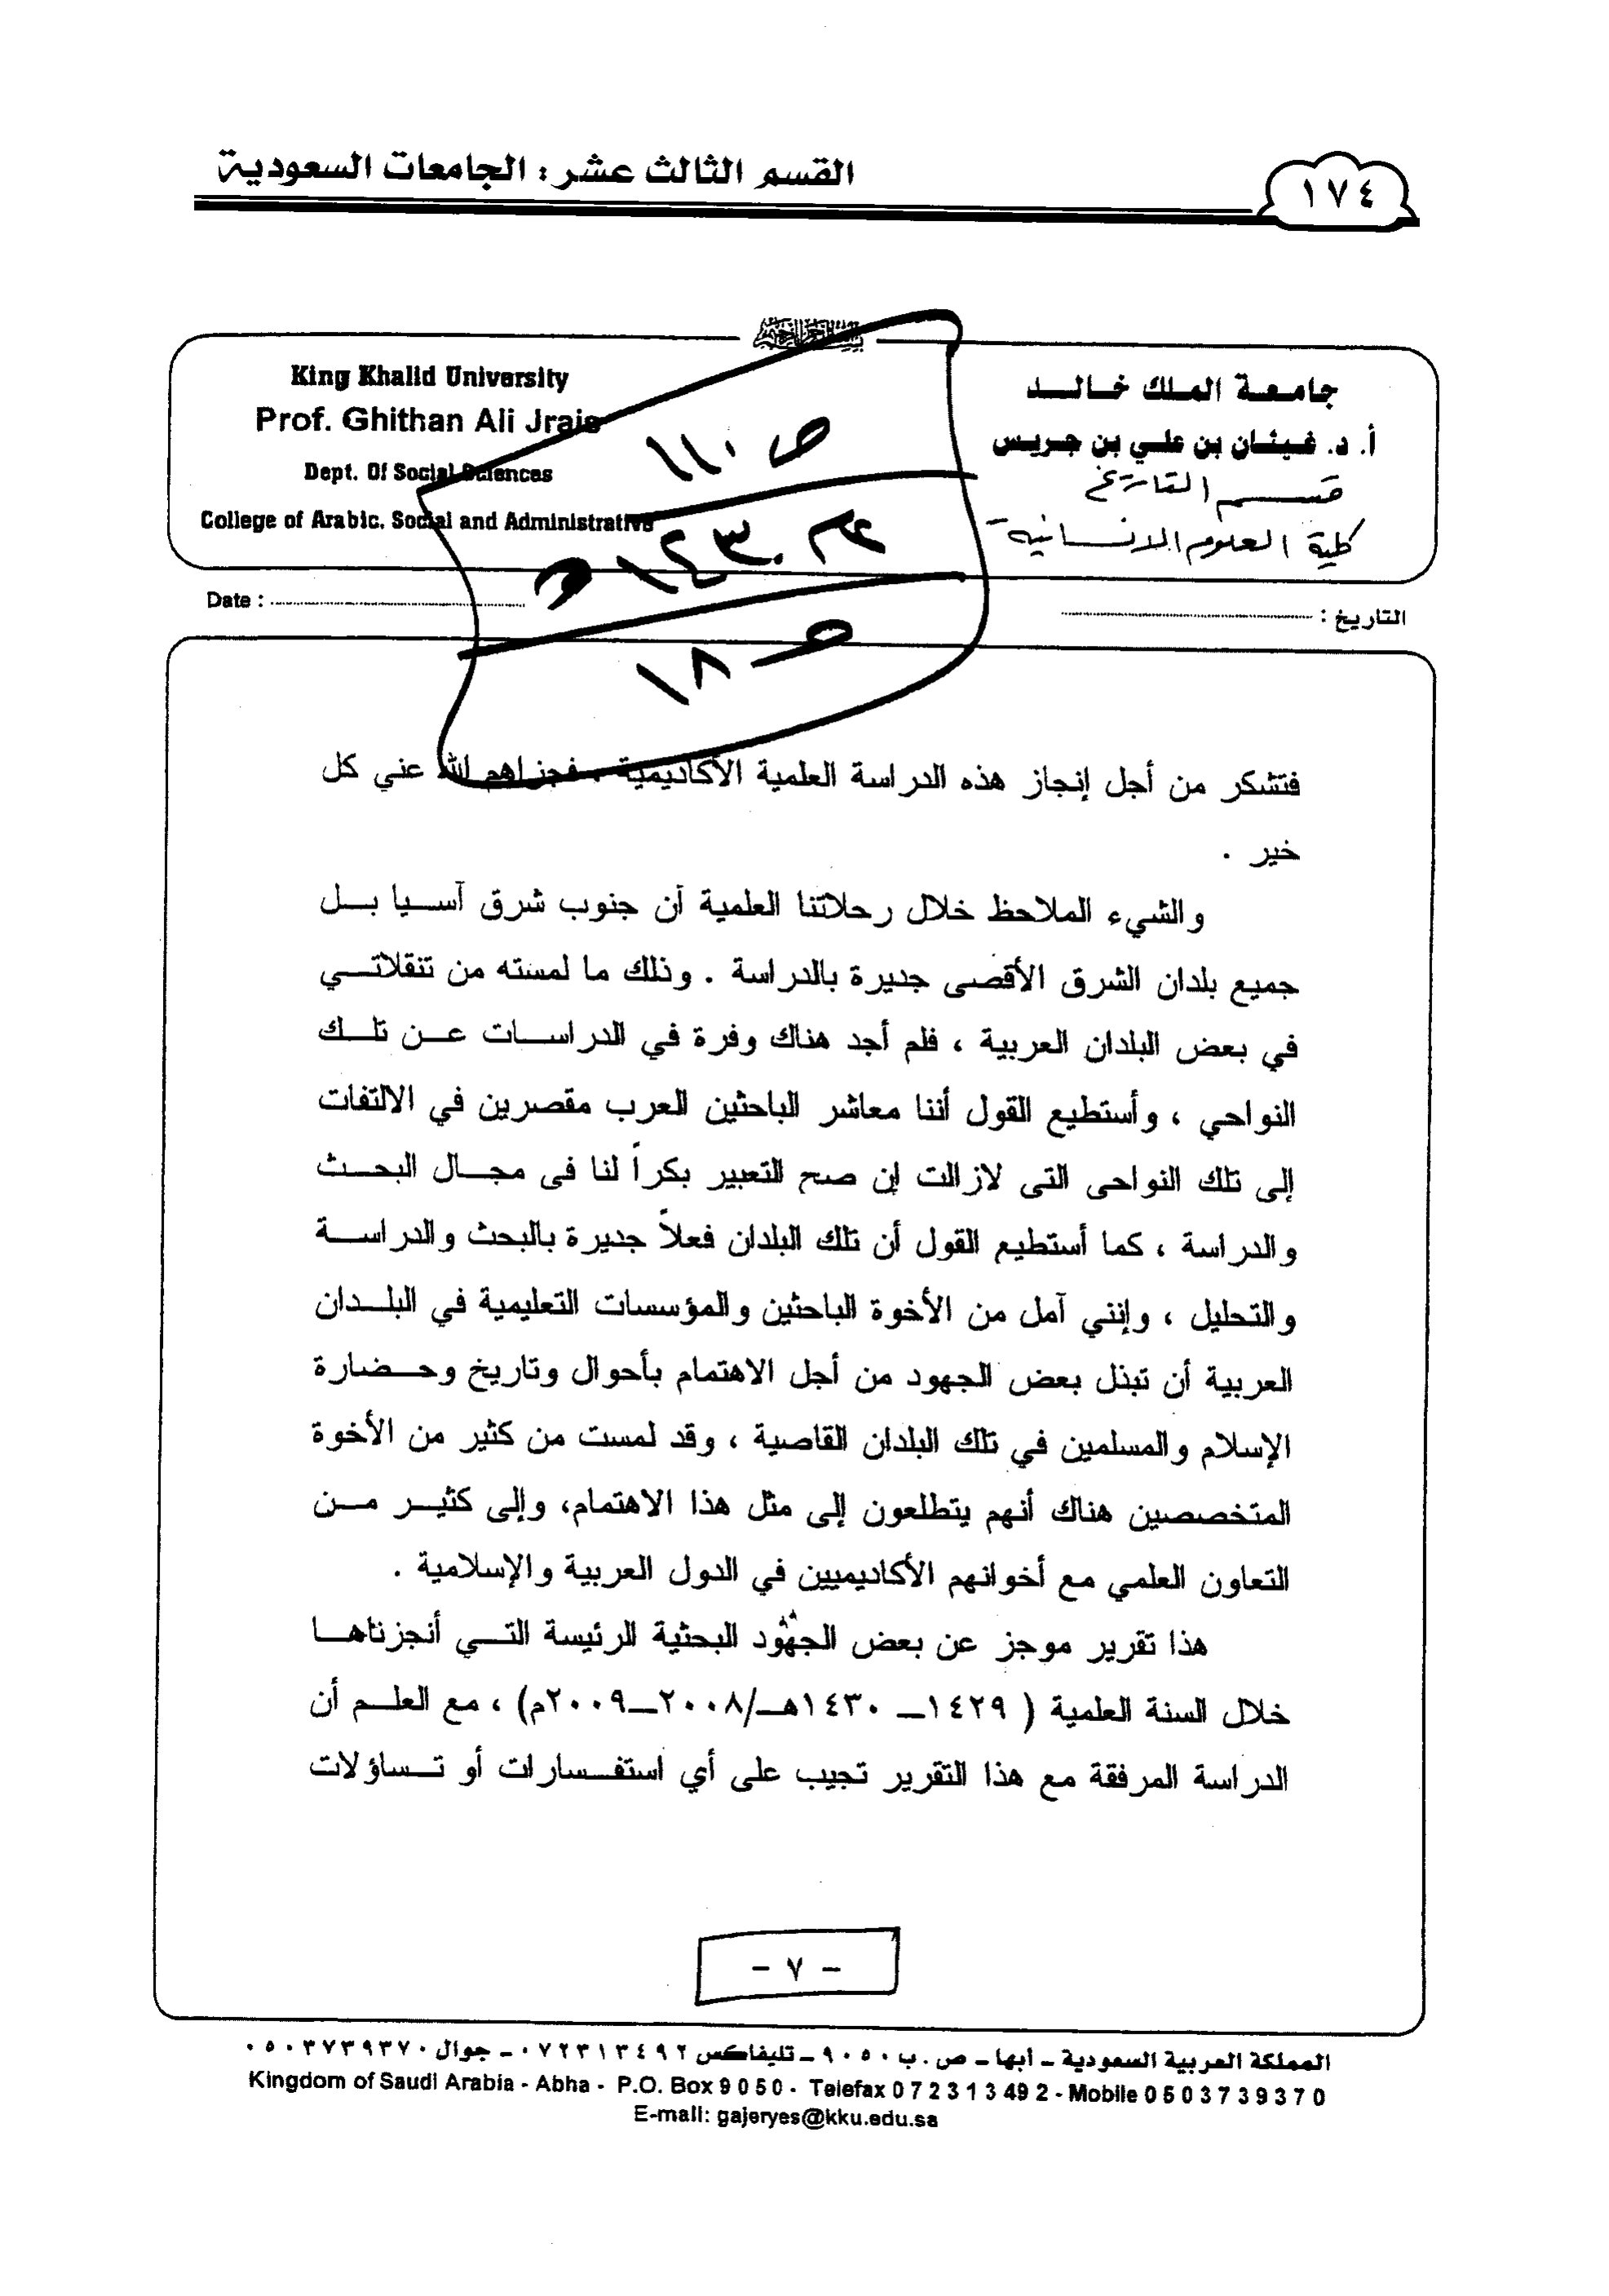 القسم الثالث عشر: الجامعات السعودية
١٧٤
جامعة الملك خالد
أ. د. غيثان بن علي بن جريس
قسم التاريخ
كلية العلوم الانسانية
King Khalid University
Prof. Ghithan Ali Jrais
Dept. Of Social Sciences
College of Arabic. Social and Administrative
ص ١١٠
١٤٣٠
ص ١٨
التاريخ :
Date :
فتشكر من أجل إنجاز هذه الدراسة العلمية الأكاديمية ، فجزاهم الله عني كل
خير .
والشيء الملاحظ خلال رحلاتنا العلمية أن جنوب شرق آسيا بل
جميع بلدان الشرق الأقصى جديرة بالدراسة . وذلك ما لمسته من تنقلاتي
في بعض البلدان العربية ، فلم أجد هناك وفرة في الدراسات عن تلك
النواحي ، وأستطيع القول أننا معاشر الباحثين العرب مقصرين في الالتفات
إلى تلك النواحى التى لازالت إن صح التعبير بكراً لنا فى مجال البحث
والدراسة ، كما أستطيع القول أن تلك البلدان فعلاً جديرة بالبحث والدراسة
والتحليل ، وإنني آمل من الأخوة الباحثين والمؤسسات التعليمية في البلدان
العربية أن تبذل بعض الجهود من أجل الاهتمام بأحوال وتاريخ وحضارة
الإسلام والمسلمين في تلك البلدان القاصية ، وقد لمست من كثير من الأخوة
المتخصصين هناك أنهم يتطلعون إلى مثل هذا الاهتمام، وإلى كثير من
التعاون العلمي مع أخوانهم الأكاديميين في الدول العربية والإسلامية .
هذا تقرير موجز عن بعض الجهود البحثية الرئيسة التي أنجزناها
خلال السنة العلمية ( ١٤٢٩ــ ١٤٣٠هــ/٢٠٠٨ــ٢٠٠٩م) ، مع العلم أن
الدراسة المرفقة مع هذا التقرير تجيب على أي استفسارات أو تساؤلات
- ٧ -
المملكة العربية السعودية ــ أبها ــ ص . ب ٩٠٥٠ ــ تليفاكس ٠٧٢٣١٣٤٩٢ ــ جوال ٠٥٠٣٧٣٩٣٧٠
Kingdom of Saudi Arabia - Abha - P.O. Box 9 0 5 0 - Telefax 0 7 2 3 1 3 49 2 - Mobile 0 5 0 3 7 3 9 3 7 0
E-mail: gajeryes@kku.edu.sa